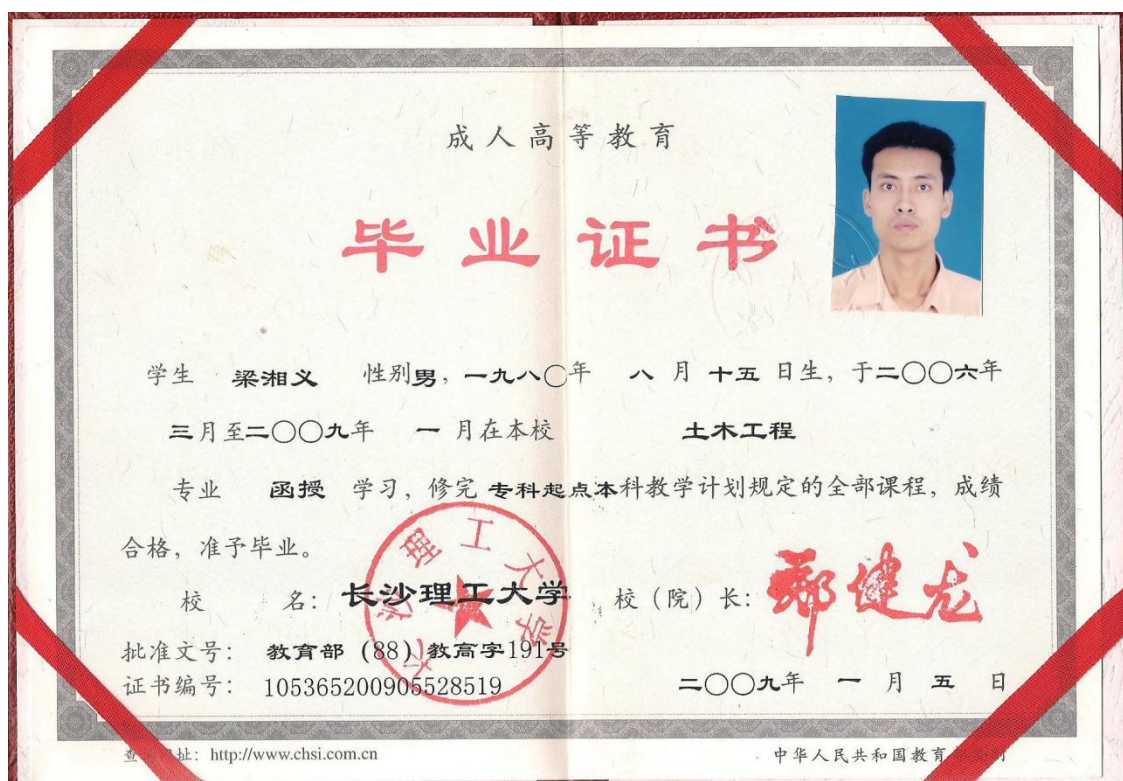 成人高等教育
毕业证书
学生 梁湘义 性别男，一九八〇年 八 月 十五 日生，于二〇〇六年
三月至二〇〇九年 一 月在本校 土木工程
专业 函授 学习，修完 专科起点本科教学计划规定的全部课程，成绩
合格，准予毕业。
校 名：长沙理工大学 校（院）长：郑健龙
批准文号：教育部 (88) 教高字191号
证书编号：105365200905528519
二〇〇九年 一 月 五 日
长沙理工大学
http://www.chsi.com.cn 中华人民共和国教育